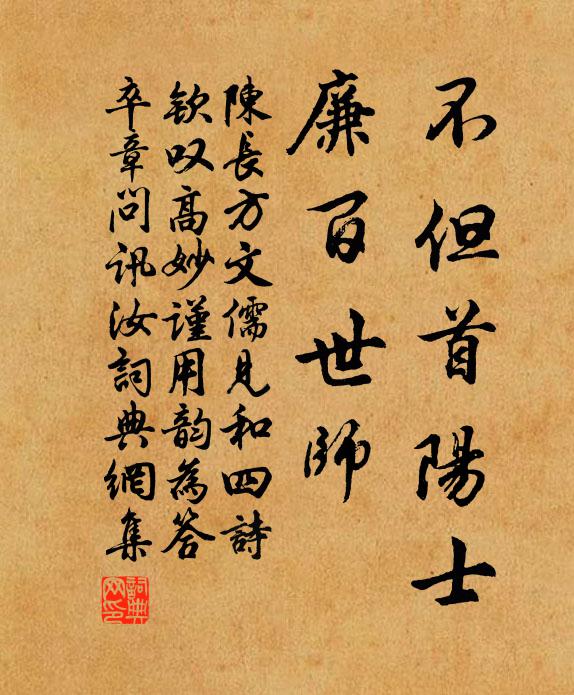 不但首陽士
廉百世師
陳長方文儒見和四詩
欽叹高妙謹用韵為答
卒章問訊汝詞典網集
詞典
网印